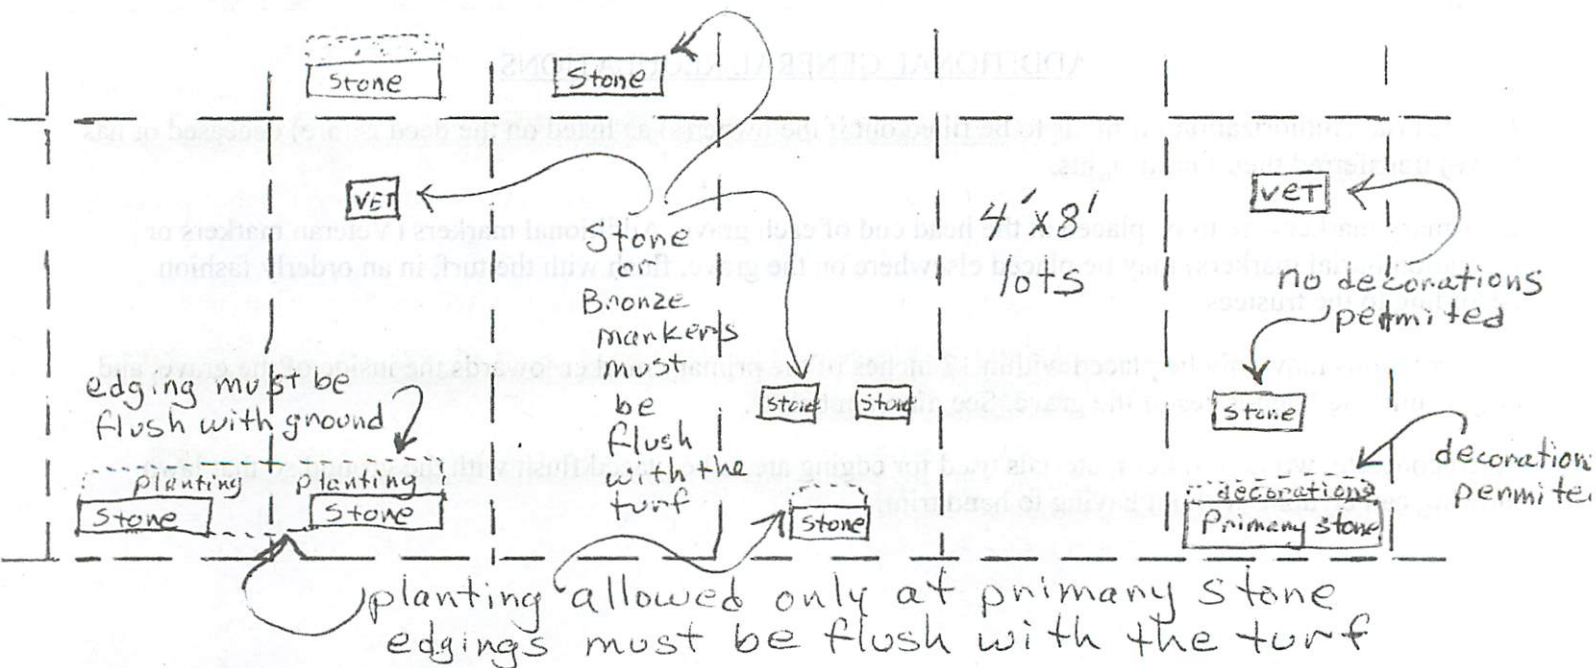 Stone
Stone
VET
VET
Stone
or
Bronze
markers
must
be
flush
with the
turf
4' x 8'
lots
no decorations
permited
edging must be
flush with ground
Stone
Stone
Stone
planting
planting
Stone
Stone
Stone
decorations
Primary Stone
decoration
permite
planting allowed only at primary stone
edgings must be flush with the turf